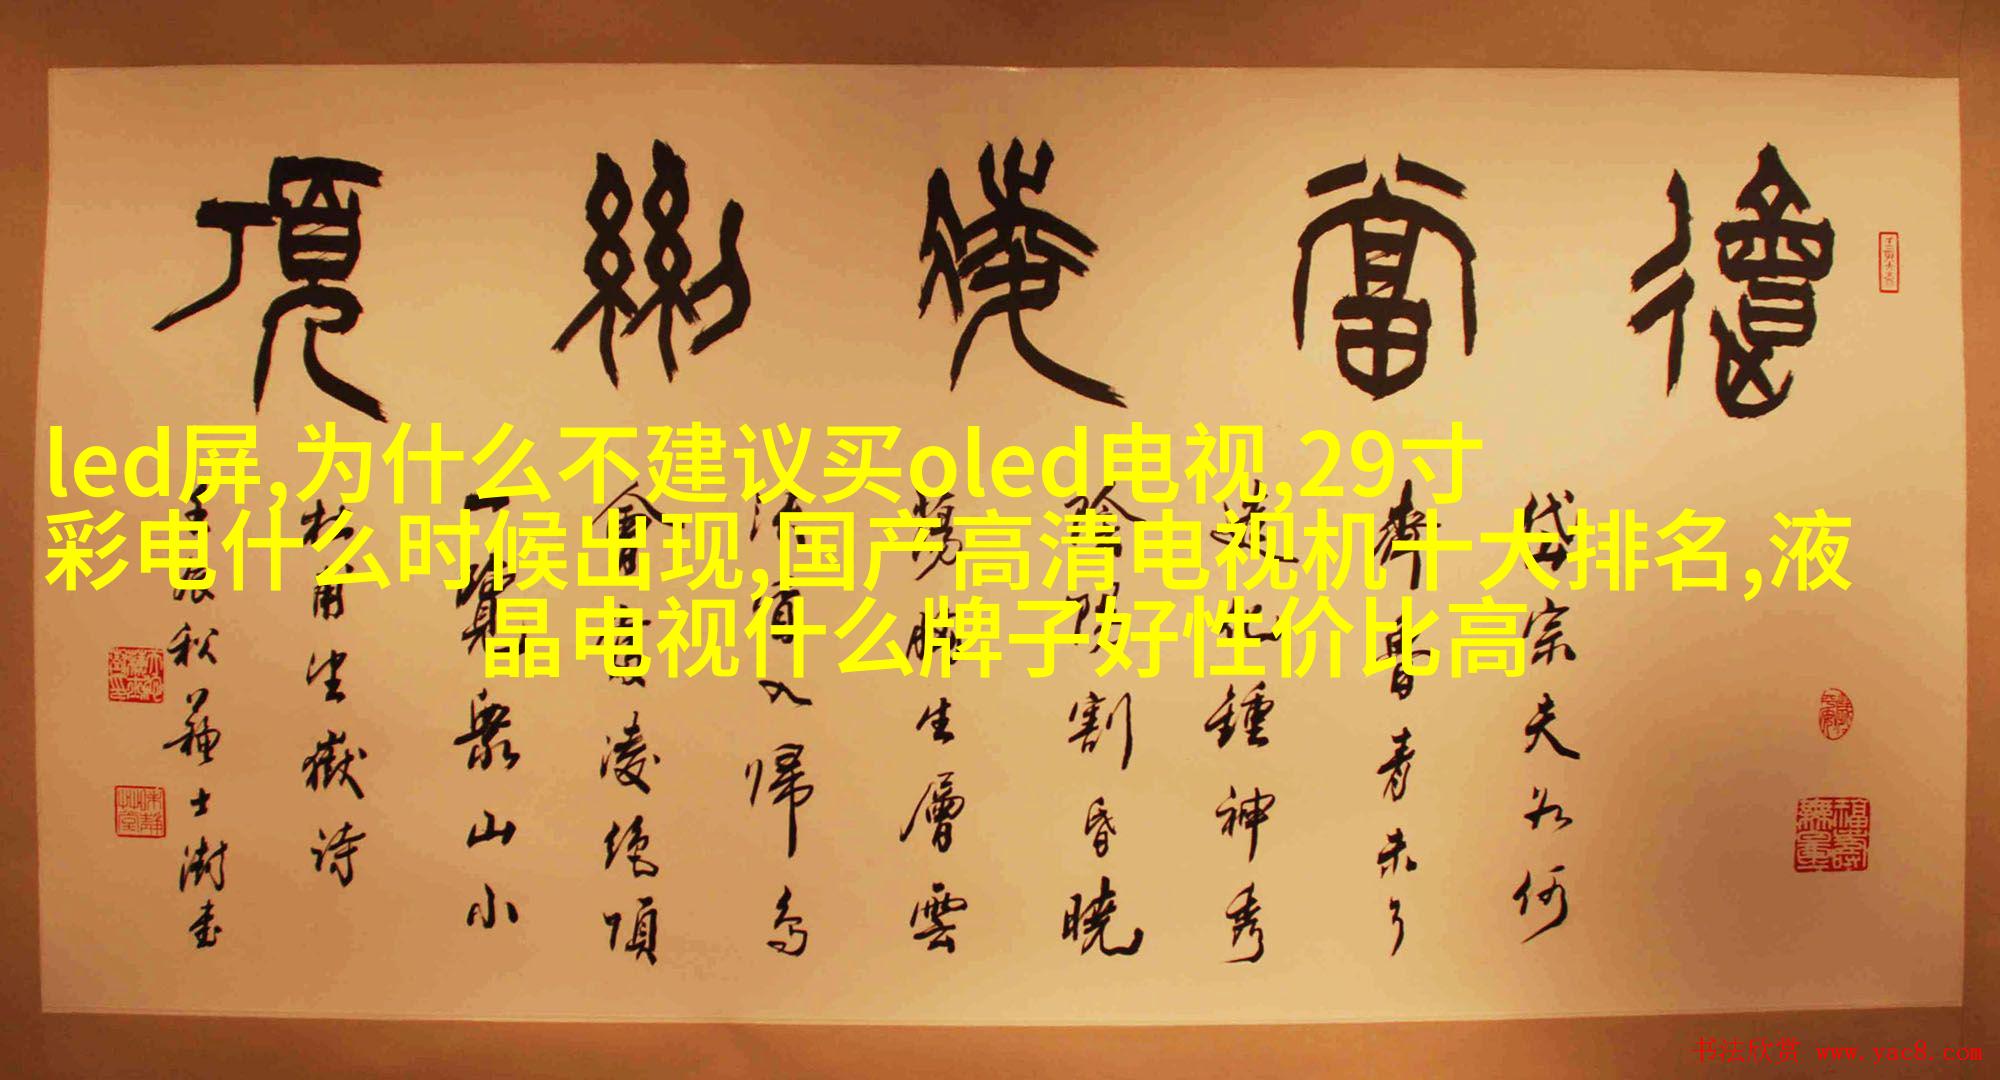 會當凌絕頂
岱宗夫如何
齊魯青未了
造化鍾神秀
陰陽割昏曉
蕩胸生層雲
決眥入歸鳥
會當凌絕頂
一覽眾山小
杜甫望嶽詩
壬辰秋蘇士澍書
福壽無量
led屏,为什么不建议买oled电视,29寸
彩电什么时候出现,国产高清电视机十大排名,液
晶电视什么牌子好性价比高
书法欣赏 www.yac8.com